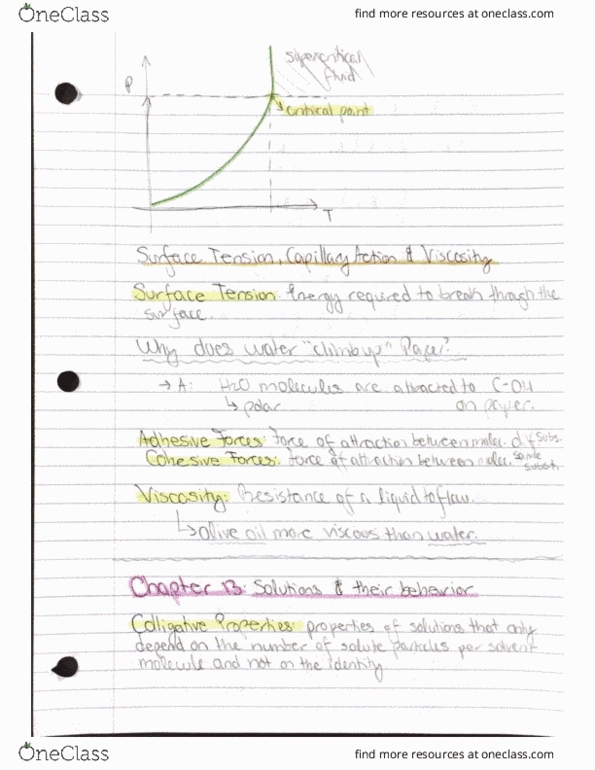 OneClass
find more resources at oneclass.com
supercritical
fluid
P
critical point
T
Surface Tension, Capillary Action & Viscosity
Surface Tension: Energy required to break through the
surface.
Why does water "climb up" Paper?
→ A: H2O molecules are attracted to C-OH
↳ polar on paper.
Adhesive Forces: Force of attraction between molec. dif subs.
Cohesive Forces: Force of attraction between molec. same
subst.
Viscosity: Resistance of a liquid to flow.
↳ olive oil more viscous than water.
Chapter 13: Solutions & their behavior
Colligative Properties: properties of solutions that only
depend on the number of solute particles per solvent
molecule and not on the identity
OneClass
find more resources at oneclass.com